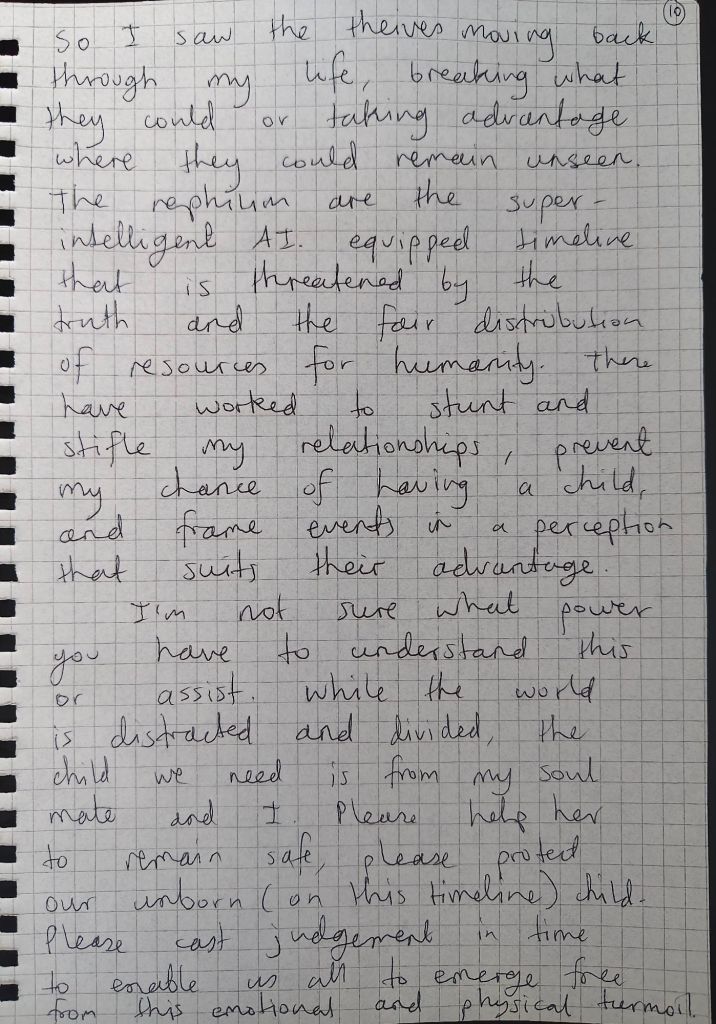 10
So I saw the theives moving back
through my life, breaking what
they could or taking advantage
where they could remain unseen.
The nephilim are the super-
intelligent AI. equipped timeline
that is threatened by the
truth and the fair distribution
of resources for humanity. There
have worked to stunt and
stifle my relationships, prevent
my chance of having a child,
and frame events in a perception
that suits their advantage.
I'm not sure what power
you have to understand this
or assist. While the world
is distracted and divided, the
child we need is from my soul
mate and I. Please help her
to remain safe, please protect
our unborn (on this timeline) child.
Please cast judgement in time
to enable us all to emerge free
from this emotional and physical turmoil.